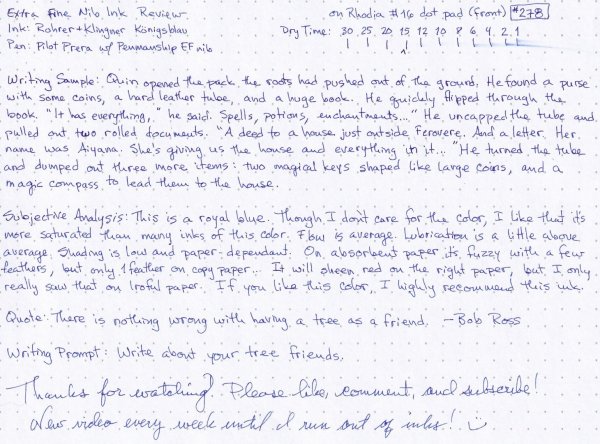 Extra Fine Nib Ink Review on Rhodia #16 dot pad (front) #278
Ink: Rohrer + Klingner Königsblau Dry Time: 30 25 20 15 12 10 8 6 4 2 1
Pen: Pilot Prera w/ Penmanship EF nib
Writing Sample: Quin opened the pack the roots had pushed out of the ground. He found a purse
with some coins, a hard leather tube, and a huge book. He quickly flipped through the
book. "It has everything," he said. Spells, potions, enchantments..." He uncapped the tube and
pulled out two rolled documents. "A deed to a house just outside Ferovere. And a letter. Her
name was Aiyana. She's giving us the house and everything in it..." He turned the tube
and dumped out three more items: two magical keys shaped like large coins, and a
magic compass to lead them to the house.
Subjective Analysis: This is a royal blue. Though I don't care for the color, I like that it's
more saturated than many inks of this color. Flow is average. Lubrication is a little above
average. Shading is low and paper-dependant. On absorbent paper it's fuzzy with a few
feathers, but only 1 feather on copy paper... It will sheen red on the right paper, but I only
really saw that on Iroful paper. If you like this color, I highly recommend this ink.
Quote: There is nothing wrong with having a tree as a friend. -Bob Ross
Writing Prompt: Write about your tree friends.
Thanks for watching! Please like, comment, and subscribe!
New video every week until I run out of inks! :)